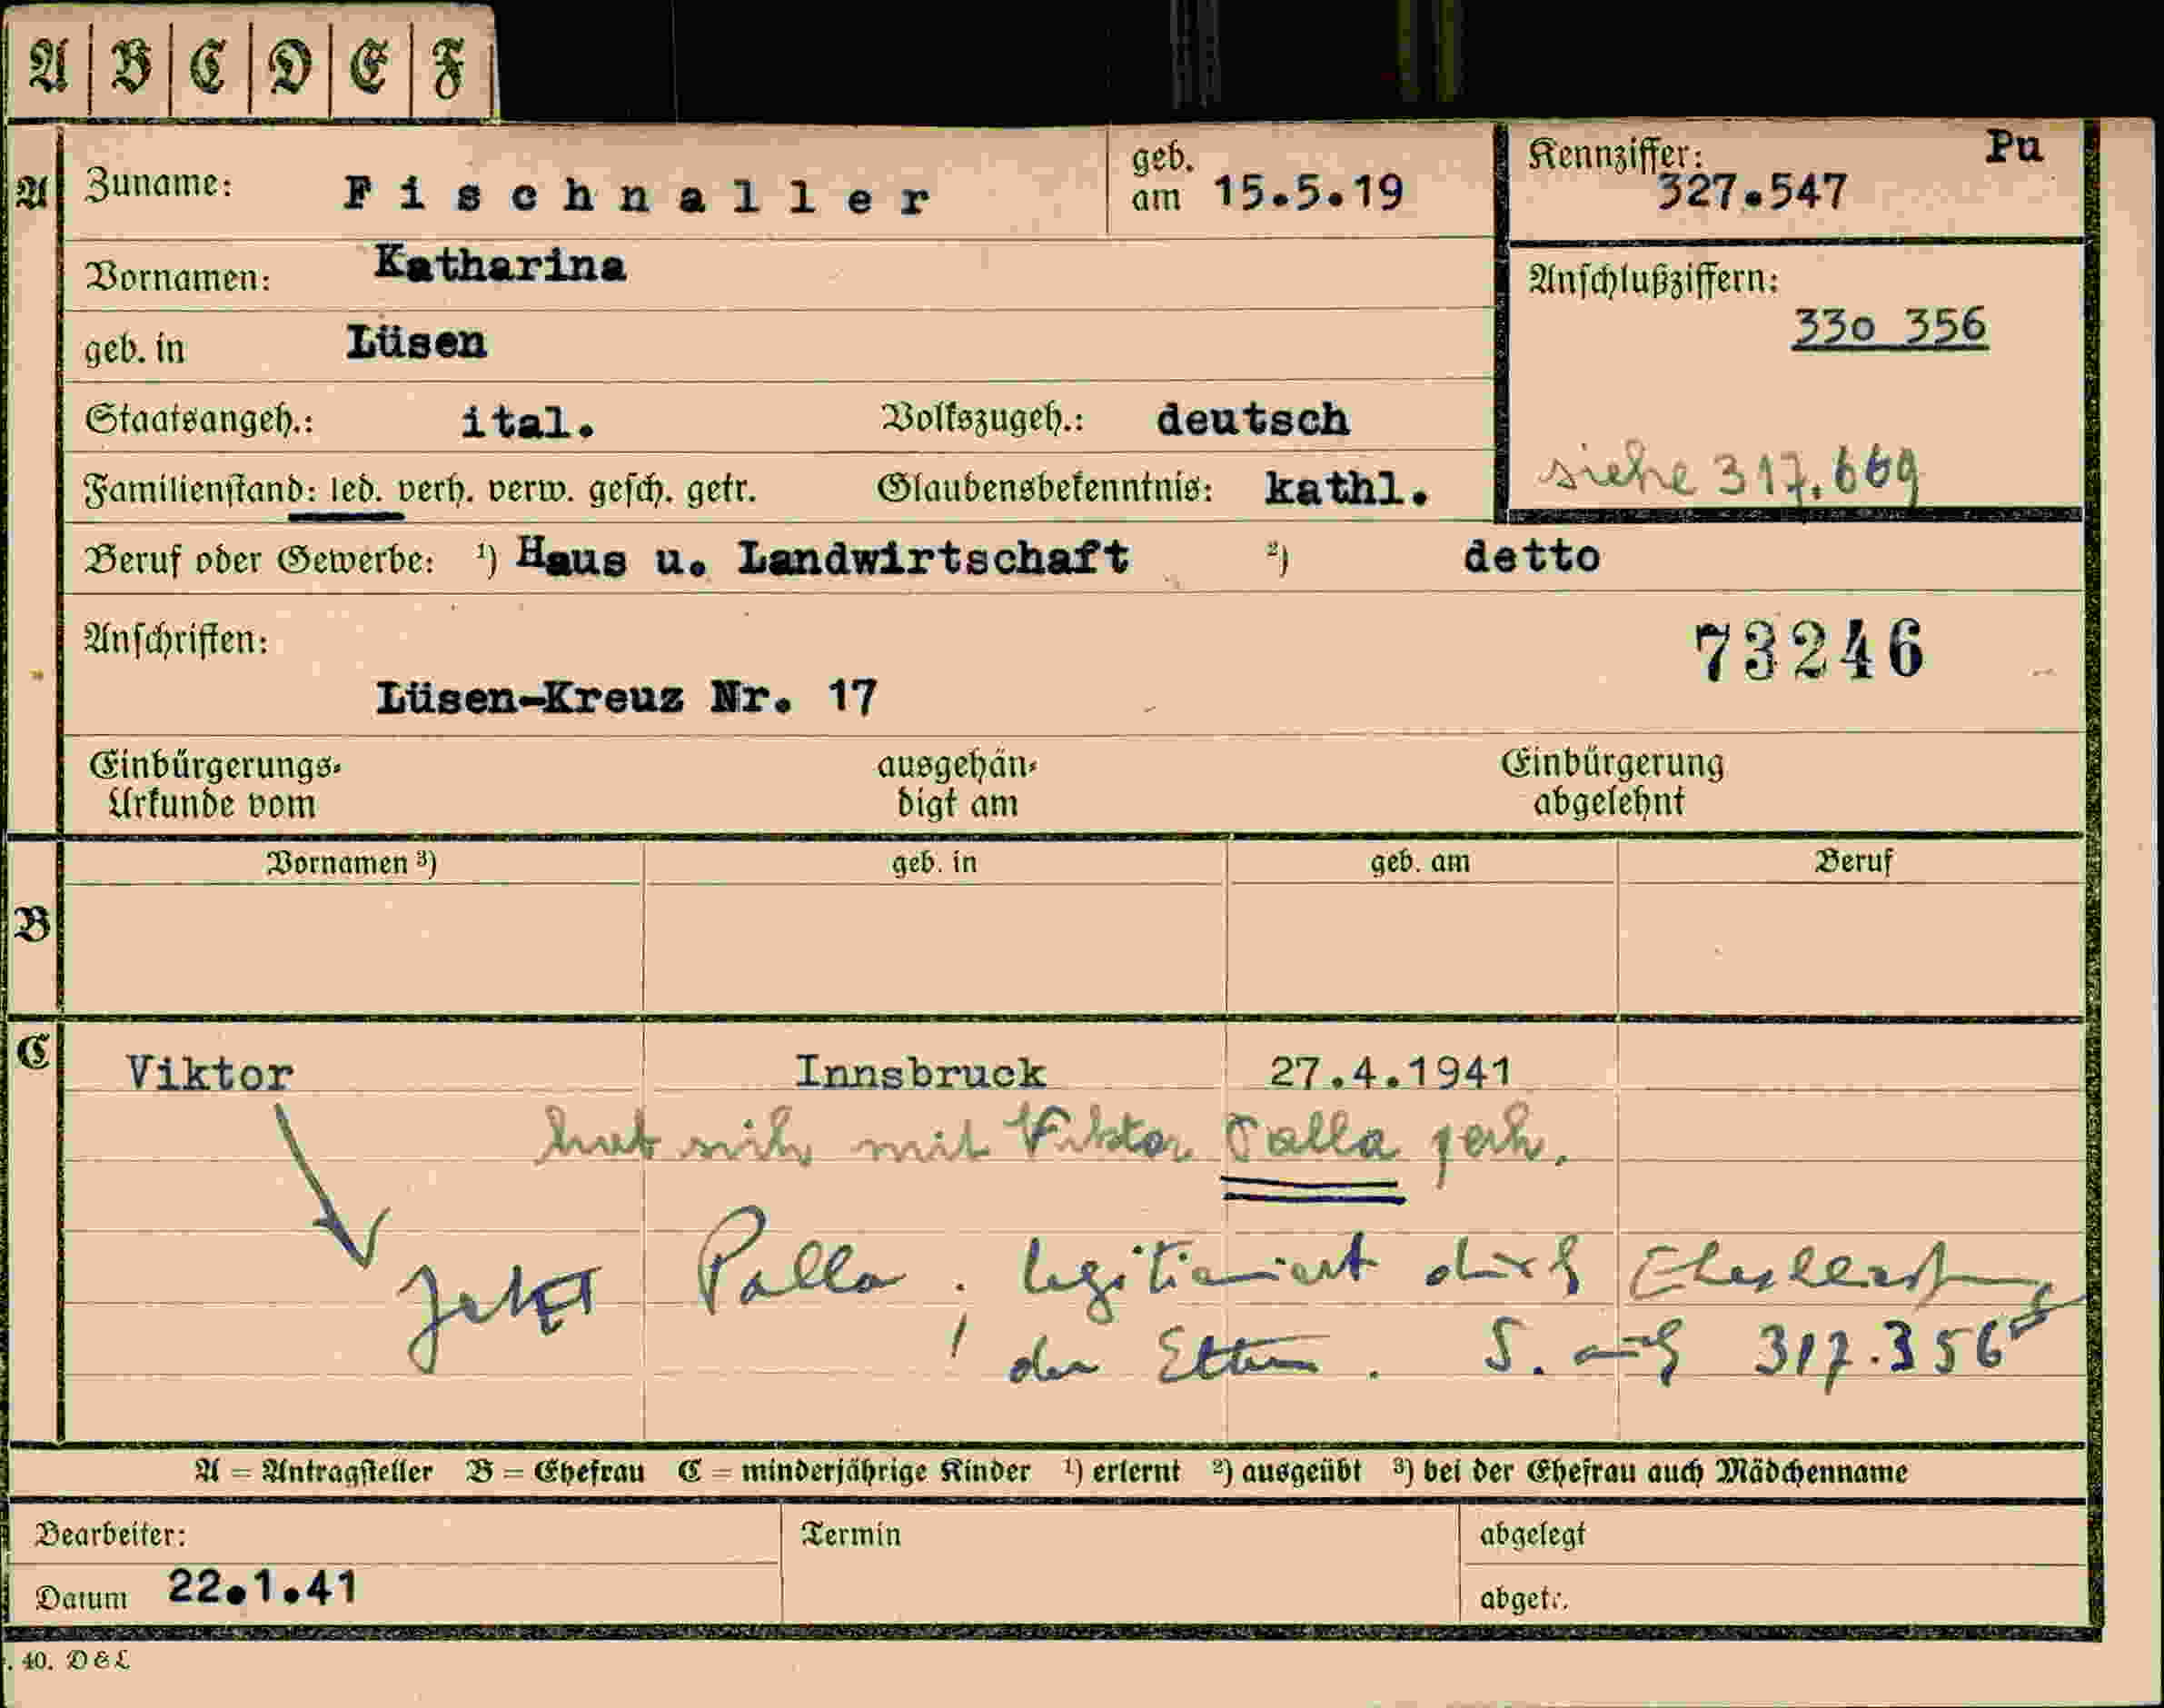 A B C D E F
A
Zuname: Fischnaller
geb. am 15.5.19
Kennziffer: 327.547
Pu
Vornamen: Katharina
Anschlußziffern:
330 356
geb. in Lüsen
Staatsangeh.: ital. Volkszugeh.: deutsch
siehe 317.669
Familienstand: led. verh. verw. gesch. getr. Glaubensbekenntnis: kathl.
Beruf oder Gewerbe: 1) Haus u. Landwirtschaft 2) detto
Anschriften:
73246
Lüsen-Kreuz Nr. 17
Einbürgerungs-
Urkunde vom
ausgehän-
digt am
Einbürgerung
abgelehnt
B
Vornamen 3) geb. in geb. am Beruf
C
Viktor Innsbruck 27.4.1941
hat sich mit Viktor Palla verh.
Jetzt Palla, legitimiert durch Eheschließung
der Eltern. S. auch 317.356
A = Antragsteller B = Ehefrau C = minderjährige Kinder 1) erlernt 2) ausgeübt 3) bei der Ehefrau auch Mädchenname
Bearbeiter:
Termin
abgelegt
Datum 22.1.41
abgetr.
. 40. D & L